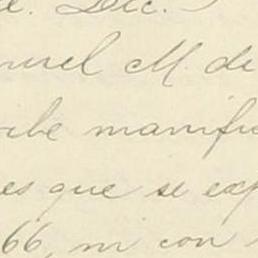 e. Dic.
nuel M. de
ribe manifie
es que se exp
66, ni con